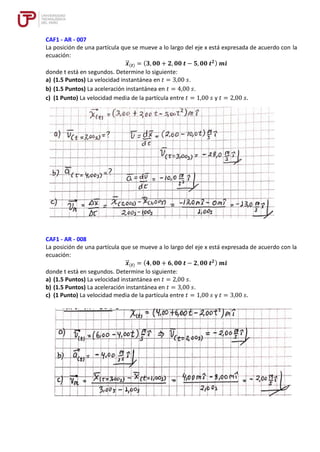 UNIVERSIDAD
TECNOLÓGICA
DEL PERÚ
CAF1 - AR - 007
La posición de una partícula que se mueve a lo largo del eje x está expresada de acuerdo con la
ecuación:
x⃗(t) = (3,00 + 2,00 t − 5,00 t²) mi
donde t está en segundos. Determine lo siguiente:
a) (1.5 Puntos) La velocidad instantánea en t = 3,00 s.
b) (1.5 Puntos) La aceleración instantánea en t = 4,00 s.
c) (1 Punto) La velocidad media de la partícula entre t = 1,00 s y t = 2,00 s.
x⃗(t) = (3,00 + 2,00t − 5,0t²) m î
a) v⃗(t=3,00s) = ? v⃗ = dx⃗/dt = (2,00 − 10,0t) m/s î
v⃗(t=3,00s) = −28,0 m/s î
b) a⃗(t=4,00s) = ? a⃗ = dv⃗/dt = −10,0 m/s² î
c) v⃗m = Δx⃗/Δt = (x⃗(2,00s) − x⃗(1,00s))/(2,00s − 1,00s) = (−13,0mî − 0mî)/1,00s = −13,0 m/s î
CAF1 - AR - 008
La posición de una partícula que se mueve a lo largo del eje x está expresada de acuerdo con la
ecuación:
x⃗(t) = (4,00 + 6,00 t − 2,00 t²) mi
donde t está en segundos. Determine lo siguiente:
a) (1.5 Puntos) La velocidad instantánea en t = 2,00 s.
b) (1.5 Puntos) La aceleración instantánea en t = 3,00 s.
c) (1 Punto) La velocidad media de la partícula entre t = 1,00 s y t = 3,00 s.
x⃗(t) = (4,00 + 6,00t − 2,00t²) m î
a) v⃗(t) = (6,00 − 4,00t) m/s î ⇒ v⃗(t=2,00s) = −2,00 m/s î
b) a⃗(t) = −4,00 m/s² î
c) v⃗m = (x⃗(t=3,00s) − x⃗(t=1,00s))/(3,00s − 1,00s) = (4,00mî − 8,00mî)/2,00s = −2,00 m/s î